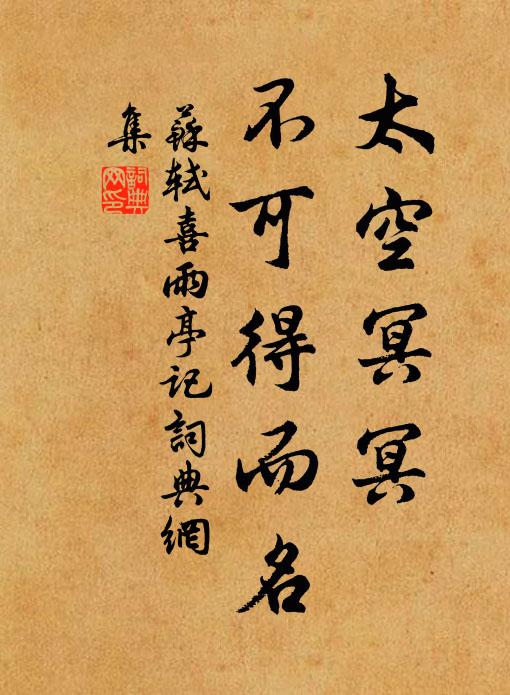 太空冥冥
不可得而名
蘇軾喜雨亭记詞典網
集
詞典
网印